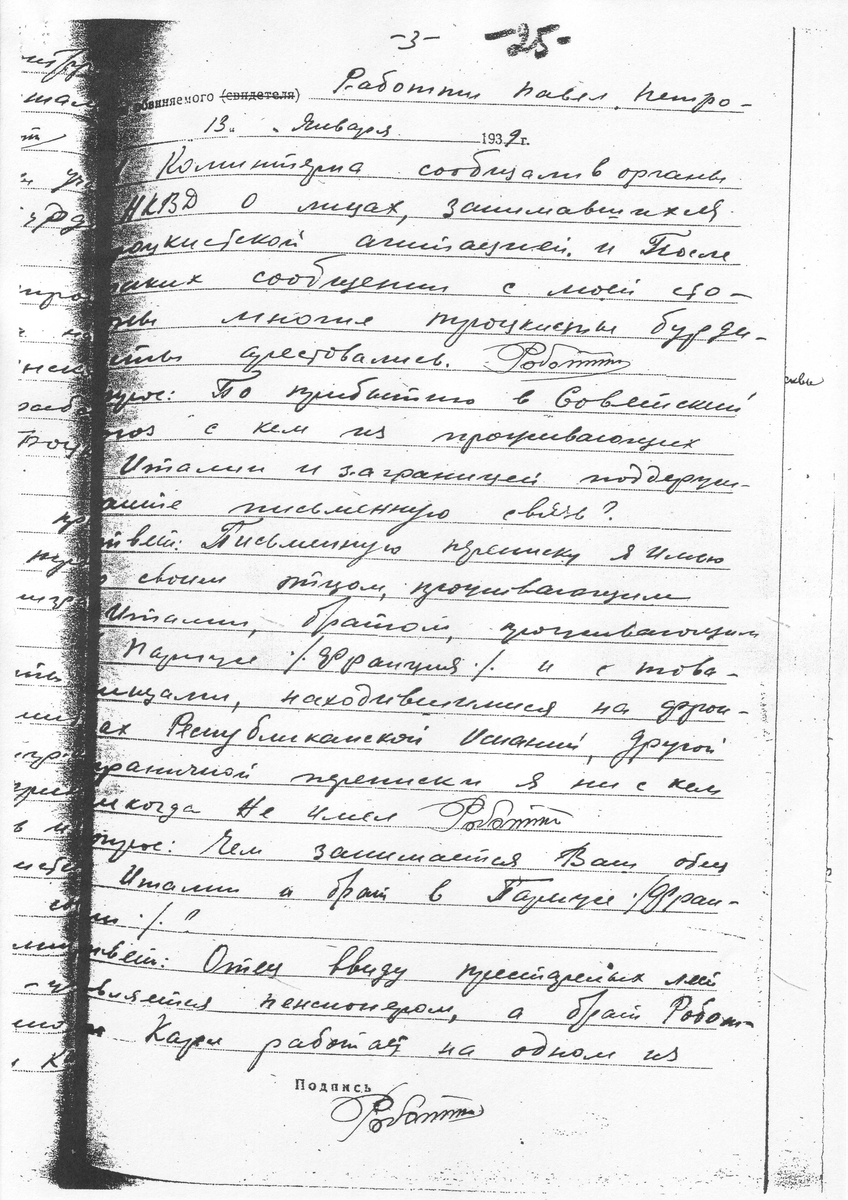 -3- -25-
обвиняемого (свидетеля) Работти Павел Петро-
13 " " Января 1939 г.
Коминтерна сообщали в органы
НКВД о лицах, занимавшихся
роцкистской агитацией. и После
таких сообщении с моей сто-
ны многие троцкисты бурди-
сты арестовались. Роботти
прос: По прибытию в Советский
юз с кем из проживающих
Италии и заграницей поддержи-
ваите письменную связь?
твет: Письменную переписку я имею
со своим отцом, проживающим
Италии, братом, проживающим
Париже /Франция/. и с това-
рищами, находившимися на фрон-
ах Республиканской Испании, другой
граничной переписки я ни с кем
икогда не имел Роботти
прос: Чем занимается Ваш отец
Италии и брат в Париже /Фран-
ции/?
твет: Отец ввиду престарелых лет
является пенсионером, а брат Робот-
Карл работает на одном из
Подпись
Роботти